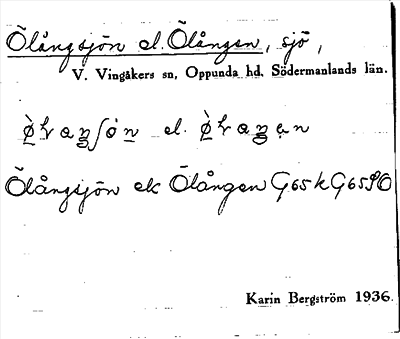 Ölångsjön el. Ölången, sjö,
V. Vingåkers sn, Oppunda hd, Södermanlands län.
el.
Ölångsjön ek Ölången G65k G65SO
Karin Bergström 1936.